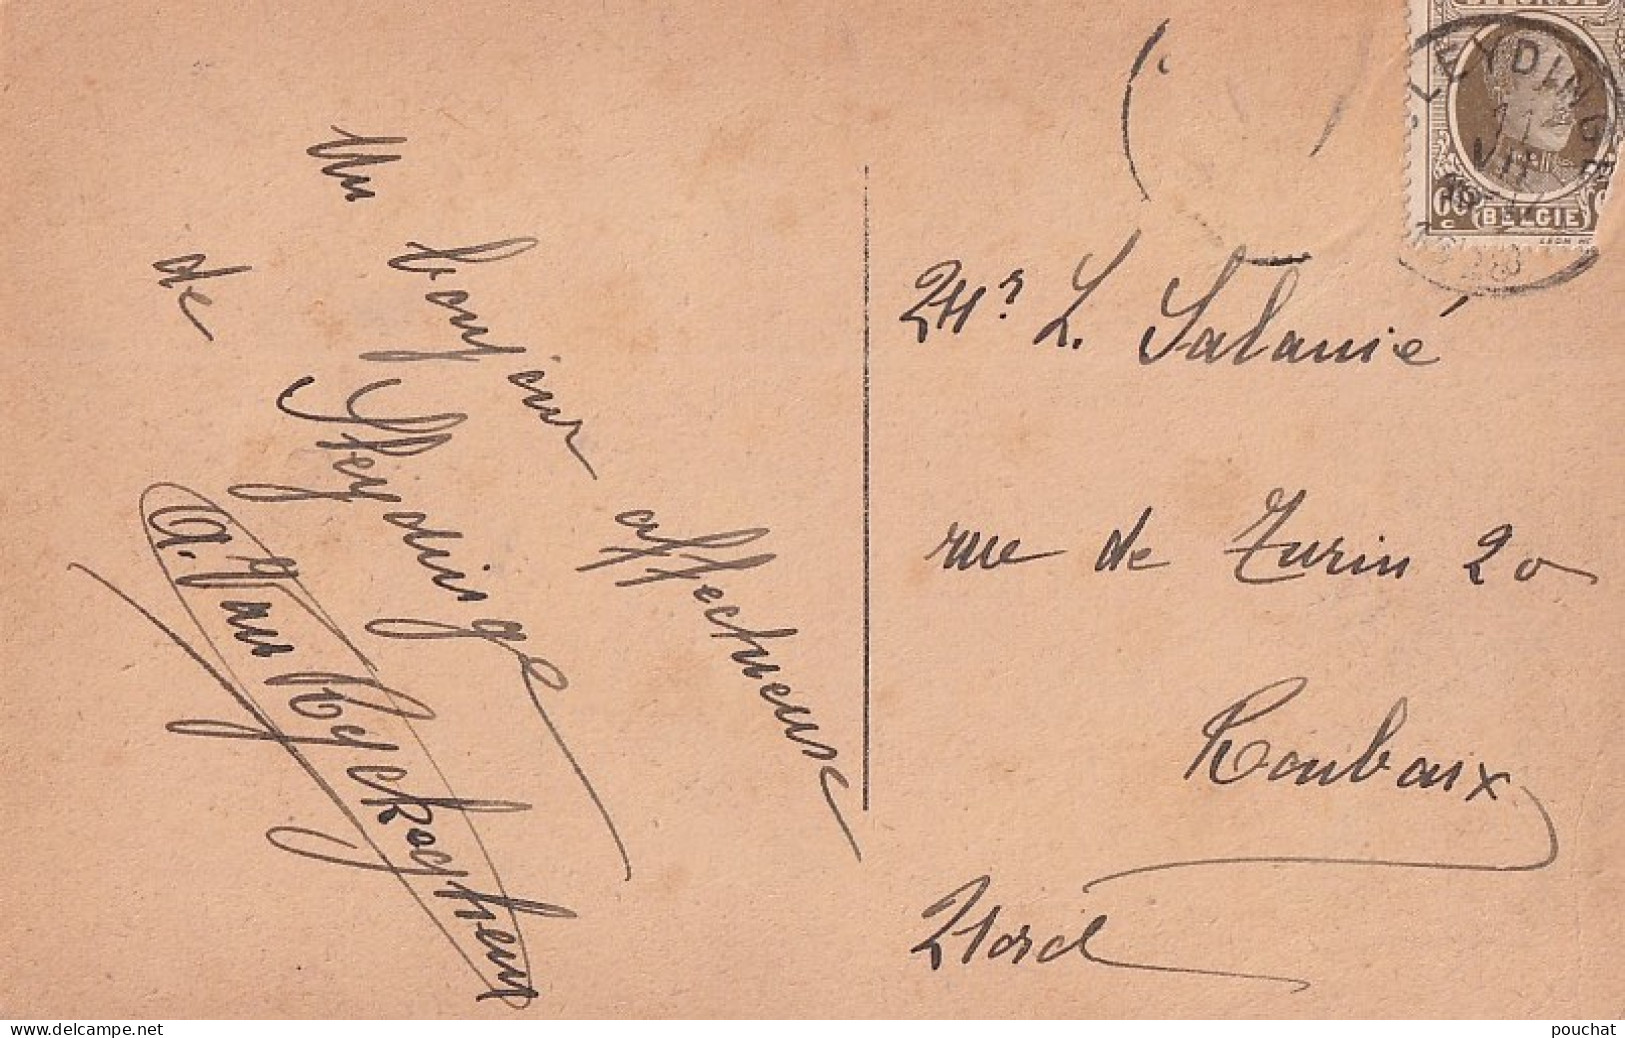 Un bonjour affectueux
de Sleydinge
A. Van Hyckeghem
Mr L. Salamié
rue de Turin 20
Roubaix
Nord
SLEYDINGE
11
VII
1928
60
c
BELGIE
www.delcampe.net
pouchat